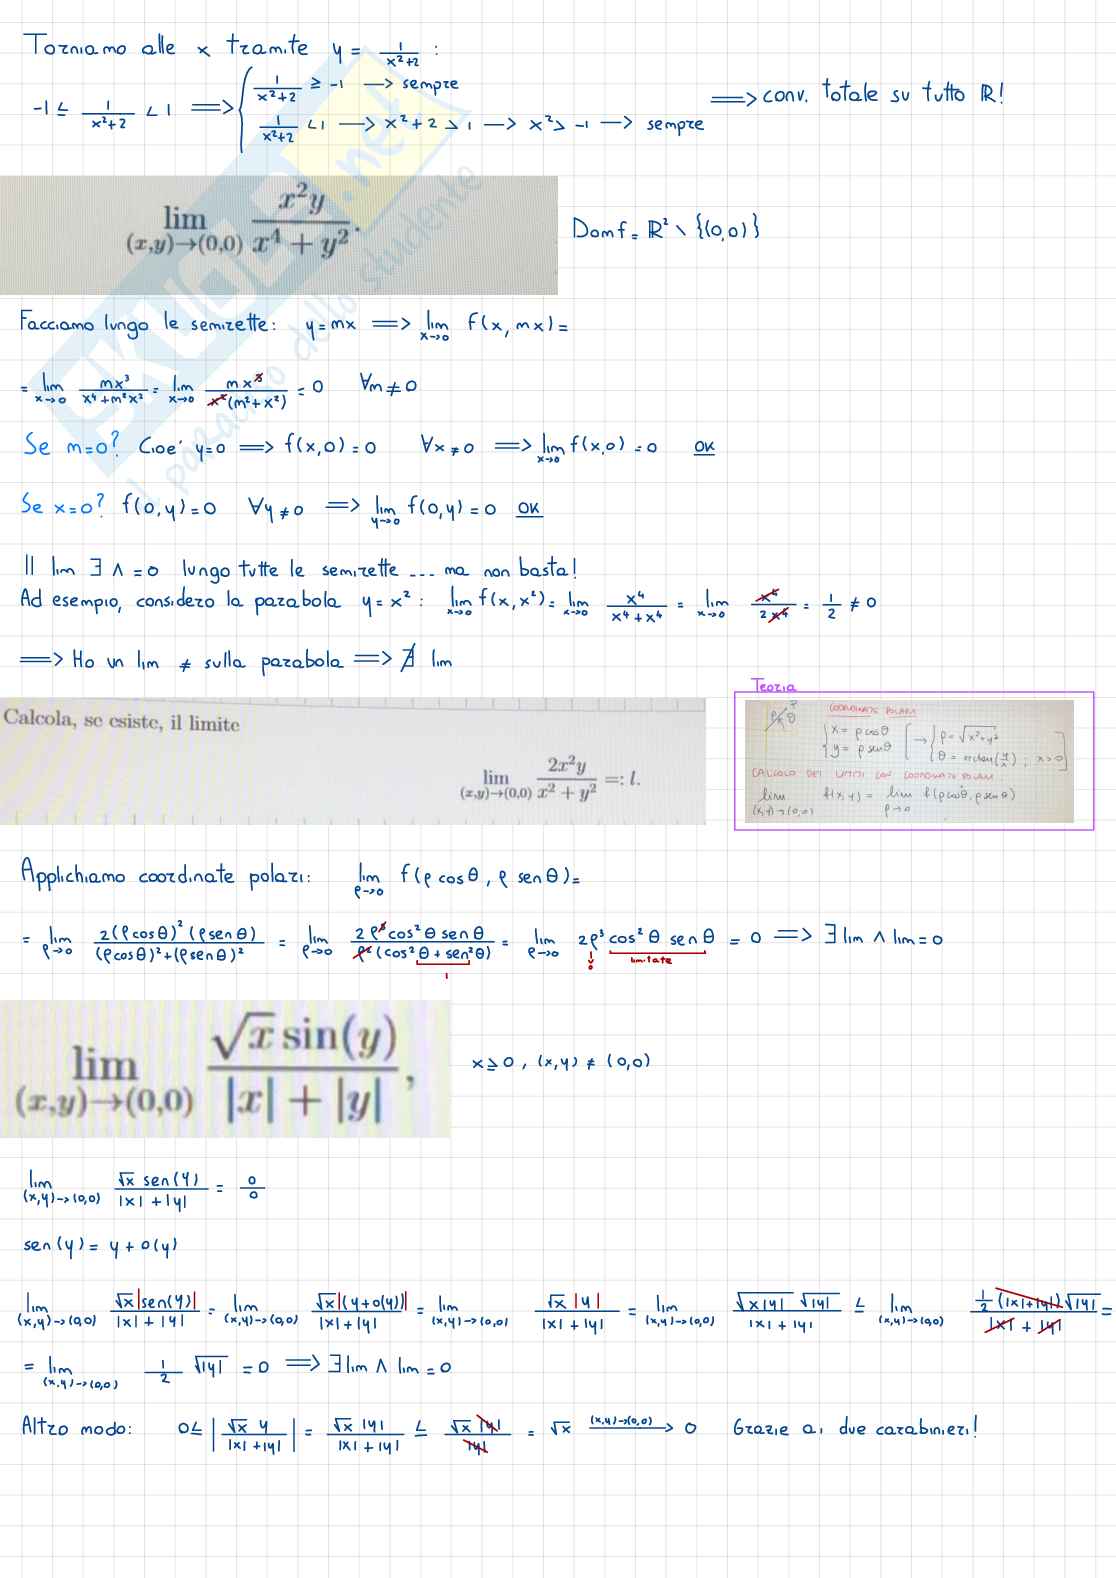 Torniamo alle x tramite y = 1/(x²+2) :
-1 ≤ 1/(x²+2) < 1 ⟹ { 1/(x²+2) ≥ -1 → sempre
1/(x²+2) < 1 → x²+2 > 1 → x² > -1 → sempre
⟹ conv. totale su tutto ℝ!
lim (x,y)→(0,0) x²y/(x⁴ + y²).
Dom f = ℝ² \ {(0,0)}
Facciamo lungo le semirette: y = mx ⟹ lim x→0 f(x, mx) =
= lim x→0 mx³/(x⁴+m²x²) = lim x→0 mx³/(x²(m²+x²)) = 0 ∀m ≠ 0
Se m=0? Cioe' y=0 ⟹ f(x,0) = 0 ∀x ≠ 0 ⟹ lim x→0 f(x,0) = 0 OK
Se x=0? f(0,y) = 0 ∀y ≠ 0 ⟹ lim y→0 f(0,y) = 0 OK
Il lim ∃ ∧ = 0 lungo tutte le semirette ... ma non basta!
Ad esempio, considero la parabola y = x² : lim x→0 f(x,x²) = lim x→0 x⁴/(x⁴+x⁴) = lim x→0 x⁴/(2x⁴) = 1/2 ≠ 0
⟹ Ho un lim ≠ sulla parabola ⟹ ∄ lim
Teoria
COORDINATE POLARI
{ x = ρ cosθ
y = ρ senθ
→ { ρ = √(x²+y²)
θ = arctan(y/x) ; x>0
CALCOLO DEI LIMITI CON COORDINATE POLARI
lim (x,y)→(0,0) f(x,y) = lim ρ→0 f(ρcosθ, ρsenθ)
Calcola, se esiste, il limite
lim (x,y)→(0,0) 2x²y/(x² + y²) =: l.
Applichiamo coordinate polari: lim ρ→0 f(ρ cosθ, ρ senθ) =
= lim ρ→0 2(ρcosθ)²(ρsenθ)/((ρcosθ)²+(ρsenθ)²) = lim ρ→0 2ρ³cos²θ senθ/(ρ²(cos²θ + sen²θ)) = lim ρ→0 2ρ³ cos²θ senθ = 0 ⟹ ∃ lim ∧ lim = 0
1
0
limitate
lim (x,y)→(0,0) √x sin(y)/(|x| + |y|),
x ≥ 0 , (x,y) ≠ (0,0)
lim (x,y)→(0,0) √x sen(y)/(|x|+|y|) = 0/0
sen(y) = y + o(y)
lim (x,y)→(0,0) √x|sen(y)|/(|x|+|y|) = lim (x,y)→(0,0) √x|(y+o(y))|/(|x|+|y|) = lim (x,y)→(0,0) √x |y|/(|x|+|y|) = lim (x,y)→(0,0) √(x|y|) √|y|/(|x|+|y|) ≤ lim (x,y)→(0,0) ½(|x|+|y|)√|y|/(|x|+|y|) =
= lim (x,y)→(0,0) 1/2 √|y| = 0 ⟹ ∃ lim ∧ lim = 0
Altro modo: 0 ≤ |√x y/(|x|+|y|)| = √x |y|/(|x|+|y|) ≤ √x |y|/|y| = √x (x,y)→(0,0) → 0 Grazie ai due carabinieri!
SKUOLA.net
il paradiso dello studente